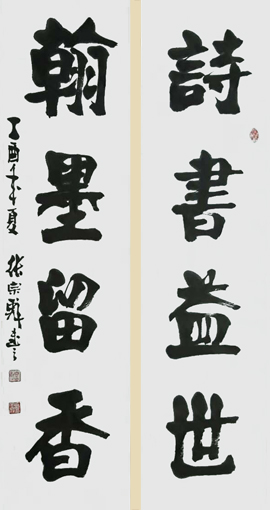 詩書益世
翰墨留香
丁酉年夏
張宗彝書